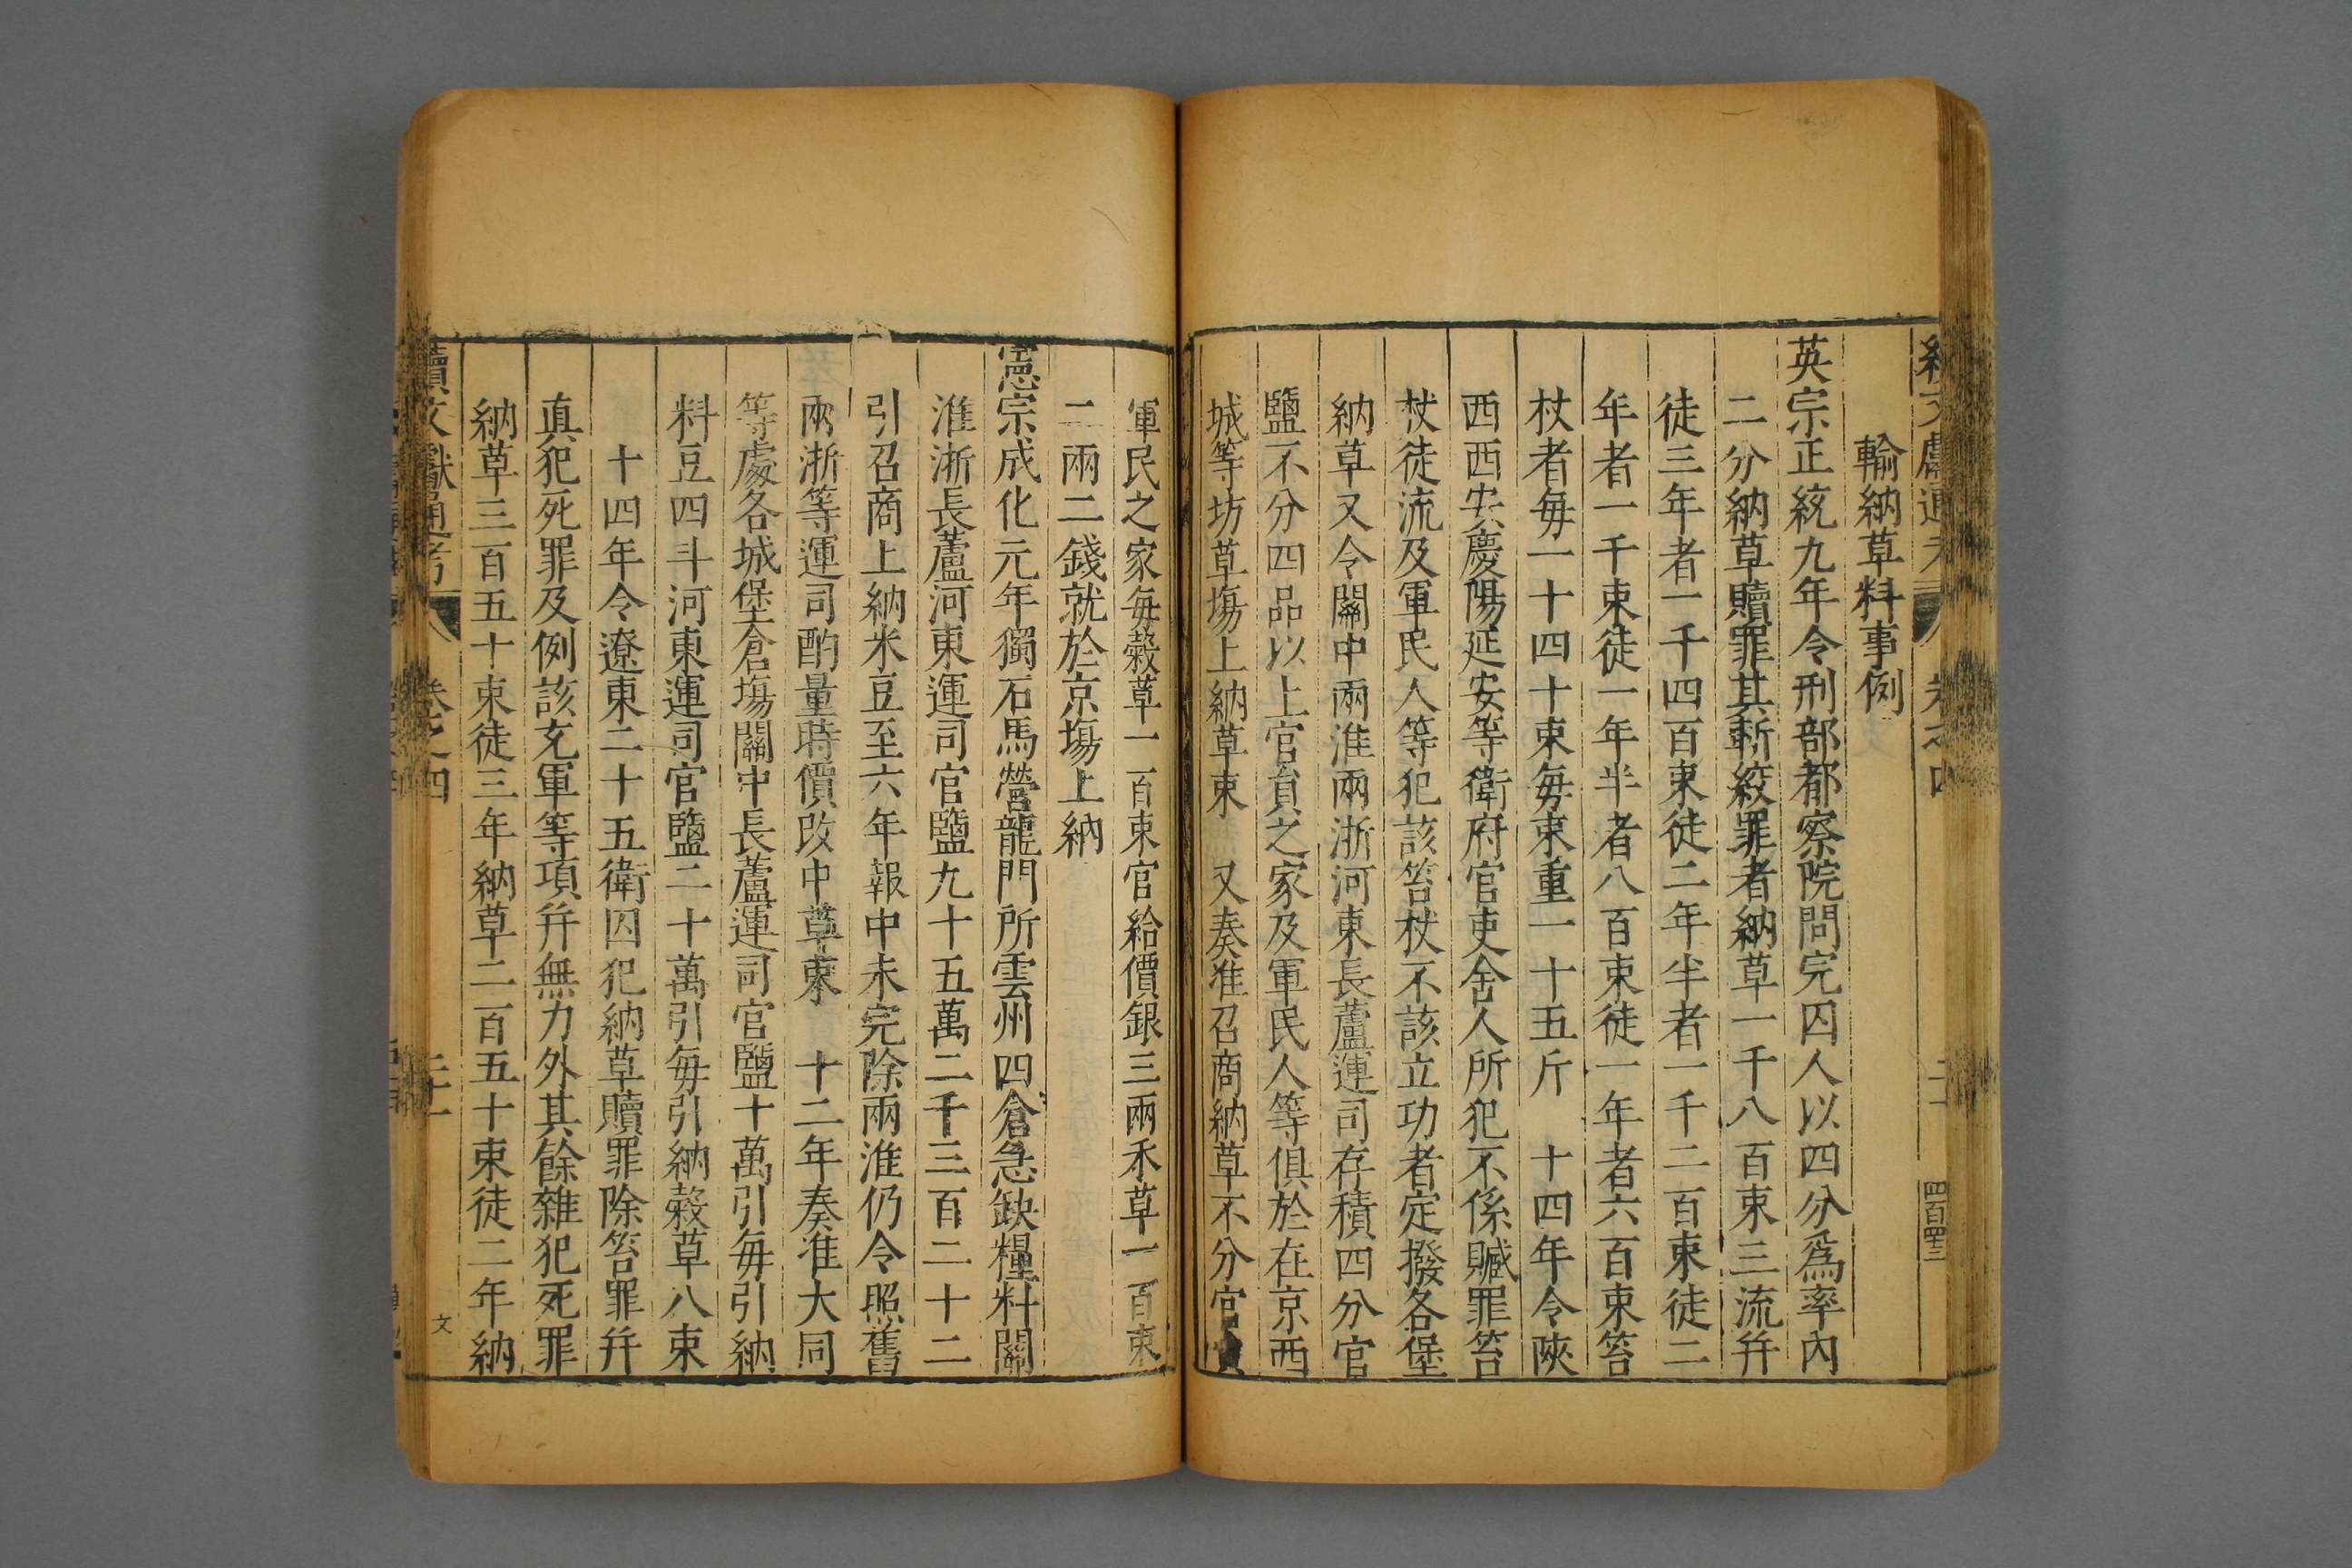 輸納草料事例
英宗正統九年令刑部都察院問完囚人以四分爲率內
二分納草贖罪其斬絞罪者納草一千八百束三流幷
徒三年者一千四百束徒二年半者一千二百束徒二
年者一千束徒一年半者八百束徒一年者六百束笞
杖者每一十四十束每束重一十五斤　十四年令陝
西西安慶陽延安等衛府官吏舍人所犯不係贓罪笞
杖徒流及軍民人等犯該笞杖不該立功者定撥各堡
納草又令關中兩淮兩浙河東長蘆運司存積四分官
鹽不分四品以上官員之家及軍民人等俱於在京西
城等坊草塲上納草束　又奏准召商納草不分官員
軍民之家每穀草一百束官給價銀三兩禾草一百束
二兩二錢就於京塲上納
憲宗成化元年獨石馬營龍門所雲州四倉急缺糧料關
淮浙長蘆河東運司官鹽九十五萬二千三百二十二
引召商上納米豆至六年報中未完除兩淮仍令照舊
兩浙等運司酌量時價改中草束　十二年奏准大同
等處各城堡倉塲關中長蘆運司官鹽十萬引每引納
料豆四斗河東運司官鹽二十萬引每引納穀草八束
十四年令遼東二十五衛囚犯納草贖罪除笞罪幷
真犯死罪及例該充軍等項幷無力外其餘雜犯死罪
納草三百五十束徒三年納草二百五十束徒二年納
續文獻通考　卷之四　二十一　文